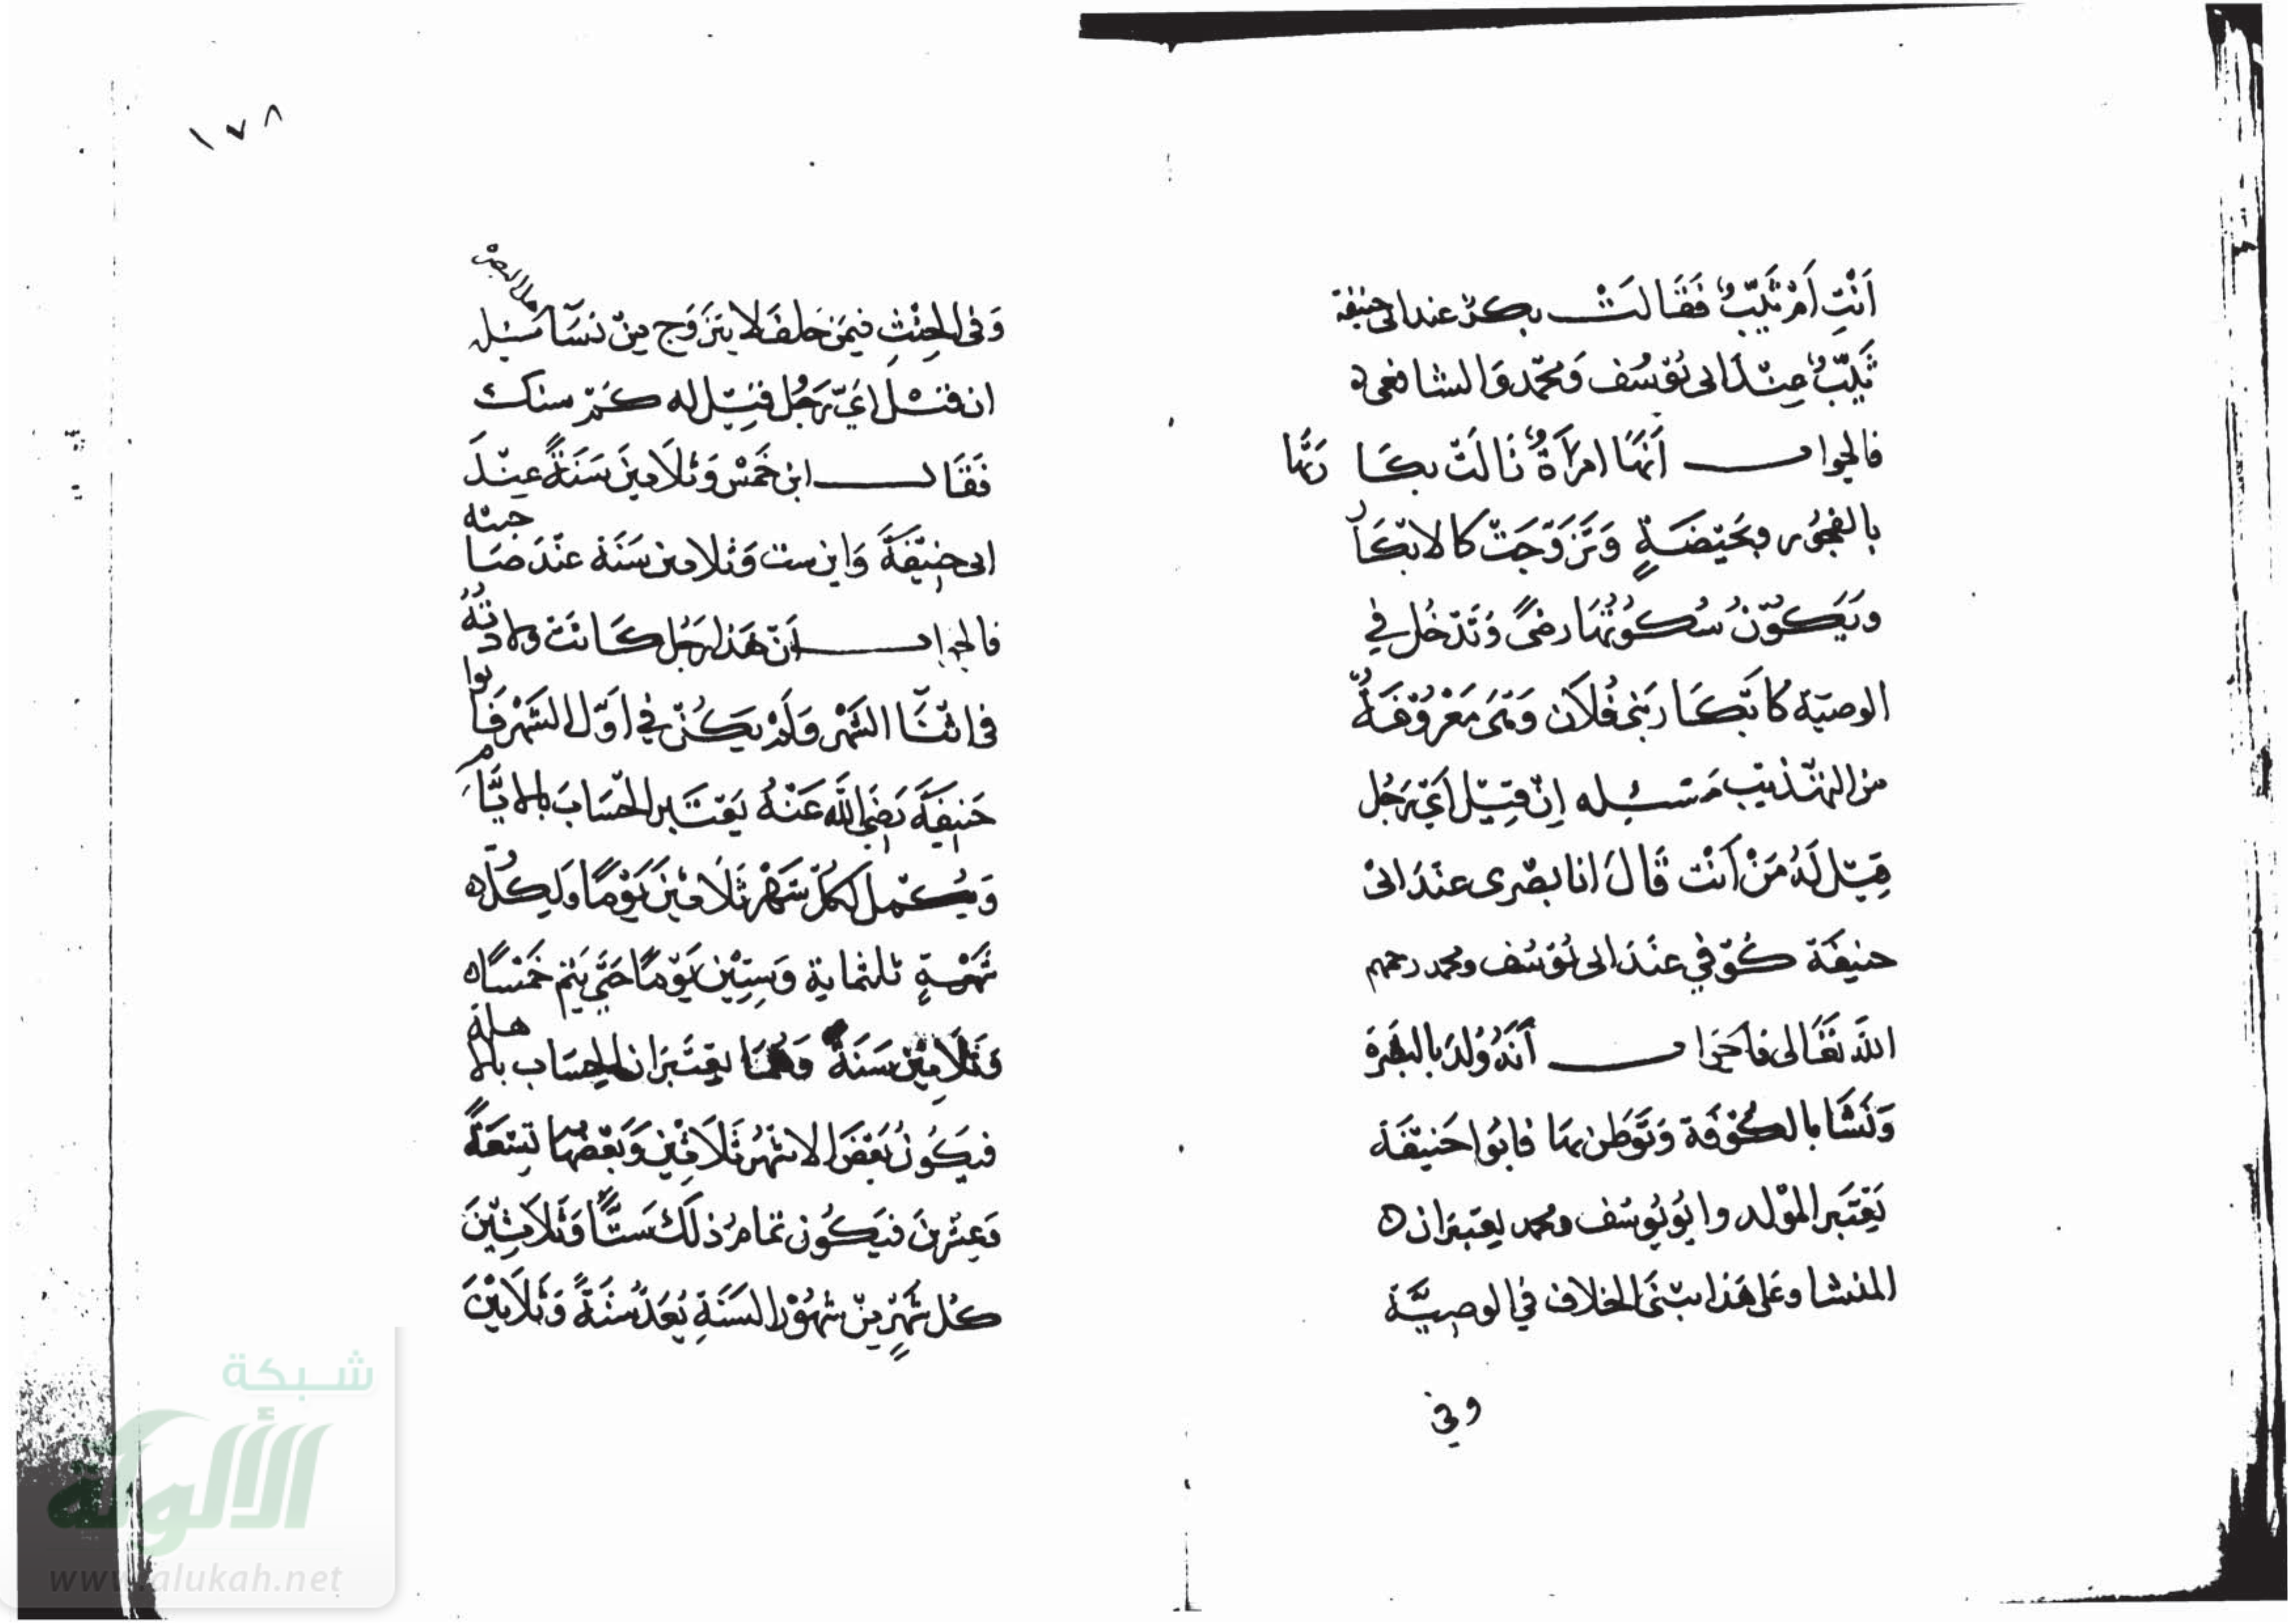 أنتِ أم ثيّبٌ فقالتْ بكرٌ عند ابى حنيفة
ثيّبٌ عِنْدَ ابى يُوسُف ومحمّد والشافعى ه
فالجواب أنها امرأةٌ زالت بكا رتها
بالفجُور وبحَيْضَةٍ وتزوّجَتْ كالابكار
ويكُونُ سُكوتُهَا رضىً وتَدْخُل في
الوصية كابكار بنى فُلَان وهى معْرُوفَةٌ
من التهذيب مسئله إن قيل أيّ رجُل
قِيْل لهُ مَنْ أنت قال انا بصْرى عنْدَ ابىْ
حنيفة كُوفي عنَد ابى يُوسُف ومحمد رحمهم
الله تعَالى فالجواب أنّهُ وُلدَ بالبصْرة
ونَشَا بالكُوفة وتوَطن بها فابُوا حَنيفَة
يعْتَبر المَوْلد وابُويُوسُف ومحمد يعتبران ه
المنشا وعَلى هَذا يبْنَى الخلاف في الوصِيَّة
وفي
١٧٨
وَفى الحِنْثِ فيمَن حَلفَ لا يتزَوج مِنْ نسَآ اهل البصرة مسئله
ان قيل ايّ رَجُل قيل له كمْ سنك
فقَال ابن خمْس وثلاثينَ سَنَةً عِنْدَ
ابى حنِيْفَةَ وابن ست وثلاثين سَنَة عنْدَ صَا حبيه
فالجواب أنّ هَذا الرَجُل كَانَتْ ولادتُهُ
فى اثنَا الشهْر ولَمْ يكُنْ في أوّل الشهْر فَابوا
حَنيفَةَ رَضىَ اللهُ عَنْهُ يعْتَبر الحسَابَ بالايَّام
وَيُكْمل لكلّ شَهْر ثَلاثيْنَ يَوْمًا ولكلّ ه
شهْرٍ ثلثماية وَسِتِيْن يَوْمًا حَتى يتم خمْسًا ه
وثَلَاثِيْن سَنَةً وَهُمَا يعْتَبَران الحِسَاب بالا هلة
فيكُونُ بَعْضَ الاشهُر ثَلَاثِيْن وبَعْضُهَا تِسْعَةً
وعِشْريْنَ فيَكُون تمام ذلَك سَتًّا وثَلَاثِيْنَ
كلُ شَهْرٍ مِنْ شهُوْر السَنَةِ يُعَدُ سَنَةً وثَلَاثِيْنَ
شبكة
الألوكة
www.alukah.net